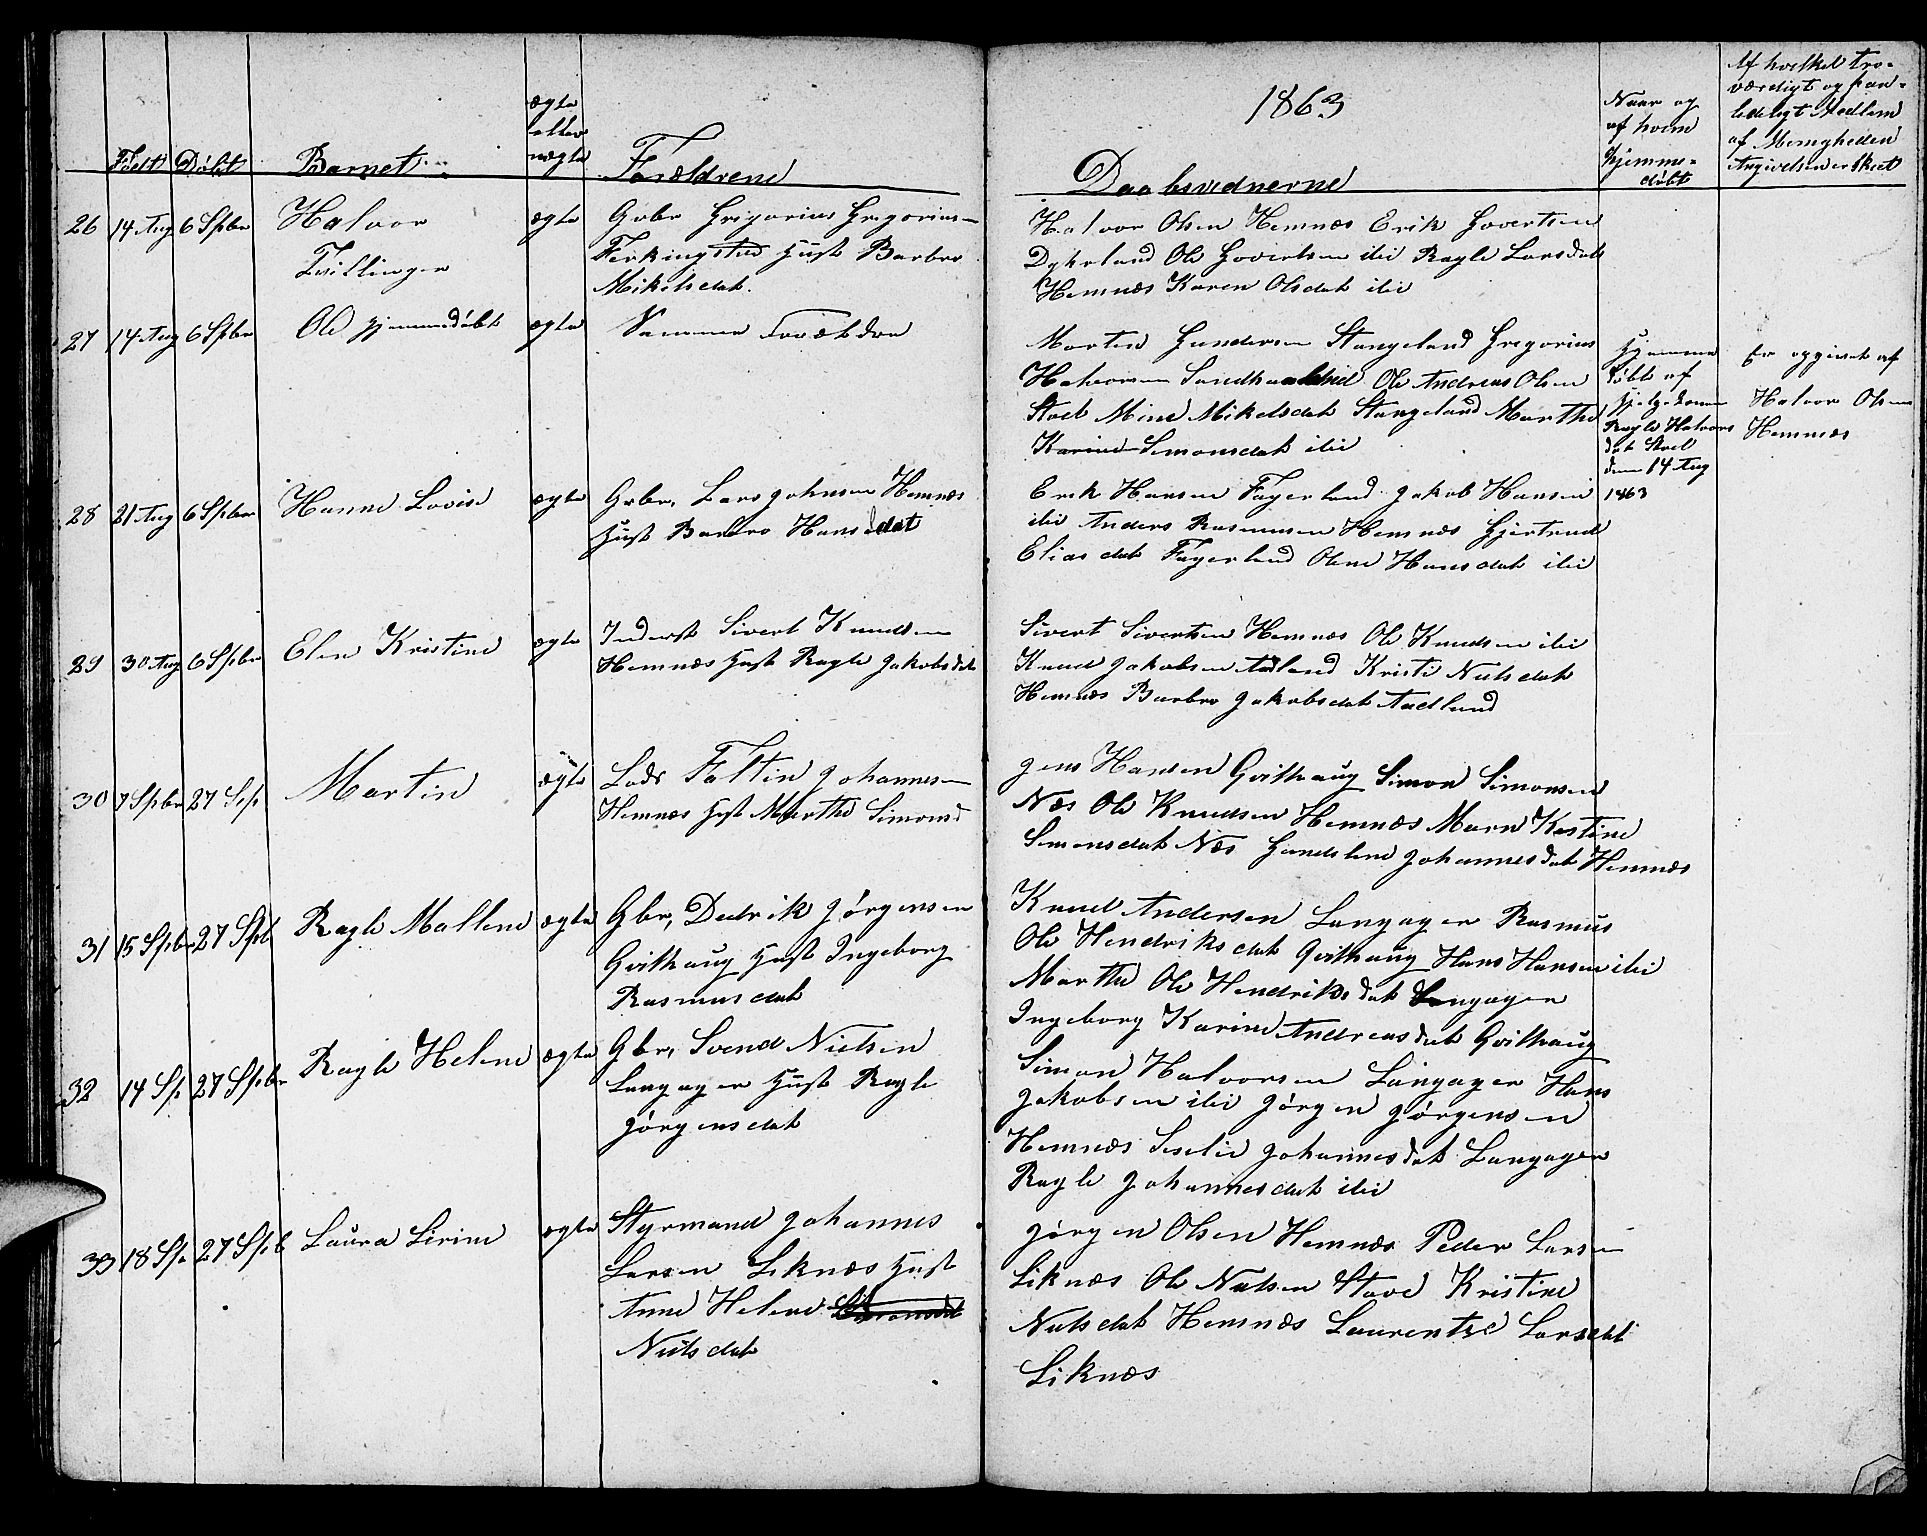 1863
Født Døbt Barnet ægte eller uægte Forældrene
Daabsvidnerne
Naar og af hvem Hjemmedøbt
Af hvilket tro-
værdigt og paa-
lideligt Medlem
af Menigheden
Angivelsen er skeet
26 14 Aug 6 Spbr Halvor ægte Gbr Grigorius Gregorius-
Tvillinger Ferkingstad Hust Barbro
Mikelsdat.
Halvor Olsen Hemnæs Erik Govertsen
Dykeland Ole Govertsen ibi Ragle Larsdat
Hemnæs Karen Olsdat ibi
27 14 Aug 6 Spbr Ole hjemmedøbt ægte Samme Forældre
Morten Gundersen Stangeland Gregorius
Halvorsen Sandhaaland Ole Andreas Olsen
Stoel Mine Mikelsdat Stangeland Marthe
Karine Simonsdat ibi
Hjemme
døbt af
Hjelpekonen
Ragle Halvors
dat Stoel
den 14 Aug
1863
Er opgivet af
Halvor Olsen
Hemnæs
28 21 Aug 6 Spbr Hanne Lovise ægte Gbr, Lars Johnsen Hemnæs
Hust Barbro Hansdat
Erik Hansen Fagerland Jakob Hansen
ibi Anders Rasmusen Hemnæs Gjertrud
Elias dat Fagerland Olene Hansdat ibi
29 30 Aug 6 Spbr Elen Kristine ægte Inderst Sivert Knudsen
Hemnæs Hust Ragle Jakobsdat
Sivert Sivertsen Hemnæs Ole Knudsen ibi
Knud Jakobsen Aadland Kristi Nilsdat
Hemnæs Barbro Jakobsdat Aadland
30 7 Spbr 27 Sep Martin ægte Lods Foltin Johannesen
Hemnæs Hust Marthe Simonsd
Jens Hansen Qvithaug Simon Simonsen
Næs Ole Knudsen Hemnæs Maren Kestine
Simonsdat Næs Gundeline Johannesdat Hemnæs
31 15 Spbr 27 Spb Ragle Mallene ægte Gbr, Dedrik Jørgensen
Qvithaug Hust Ingeborg
Rasmusdat
Knud Andersen Langager Rasmus
Ole Hendriksdat Qvithaug Hans Hansen ibi
Marthe Ole Hendriksdat Langager
Ingeborg Karine Andreasdat Qvithaug
32 14 Sp 27 Spbr Ragle Helene ægte Gbr, Svend Nielsen
Langager Hust Ragle
Jørgensdat
Simon Halvorsen Langager Hans
Jakobsen ibi Jørgen Jørgensen
Hemnæs Seselie Johannesdat Langager
Ragle Johannesdat ibi
33 18 Sp 27 Spb Laura Sirine ægte Styrmand Johannes
Larsen Liknæs Hust
Anne Helene
Nilsdat
Jørgen Olsen Hemnæs Peder Larsen
Liknæs Ole Nilsen Stove Kristine
Nilsdat Hemnæs Laurentse Larsdat
Liknæs